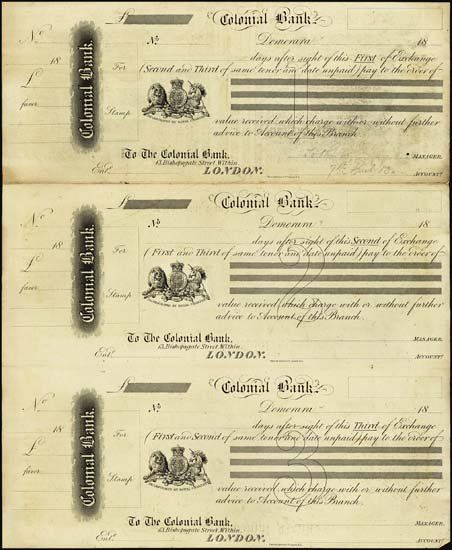 £ Colonial Bank.
No. No. Demerara 18
18 days after sight of this First of Exchange
£ For (Second and Third of same tenor and date unpaid) pay to the order of
Colonial Bank.
favor Stamp value received which charge with or without further
advice to Account of this Branch.
To The Colonial Bank. MANAGER.
13, Bishopsgate Street, Within.
Entd. LONDON. ACCOUNTt.
£ Colonial Bank.
No. No. Demerara 18
18 days after sight of this Second of Exchange
£ For (First and Third of same tenor and date unpaid) pay to the order of
Colonial Bank.
favor Stamp value received which charge with or without further
advice to Account of this Branch.
To The Colonial Bank. MANAGER.
13, Bishopsgate Street, Within.
Entd. LONDON. ACCOUNTt.
£ Colonial Bank.
No. No. Demerara 18
18 days after sight of this Third of Exchange
£ For (First and Second of same tenor and date unpaid) pay to the order of
Colonial Bank.
favor Stamp value received which charge with or without further
advice to Account of this Branch.
To The Colonial Bank. MANAGER.
13, Bishopsgate Street, Within.
Entd. LONDON. ACCOUNTt.